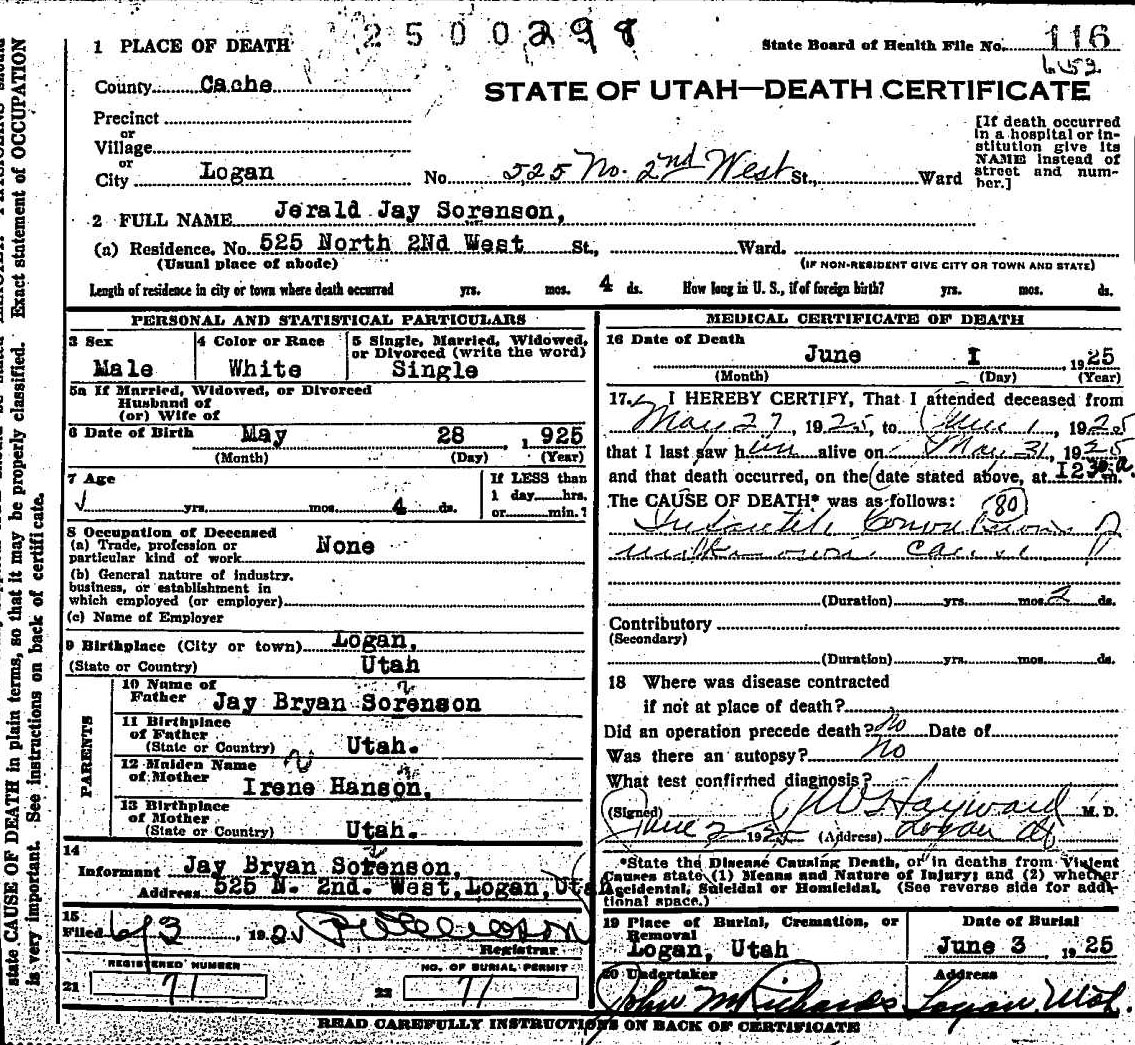 2500298
1 PLACE OF DEATH
State Board of Health File No. 116
County Cache
STATE OF UTAH—DEATH CERTIFICATE
Precinct
or
Village
or
City Logan
No 525 No. 2nd West St., Ward
[If death occurred
in a hospital or in-
stitution give its
NAME instead of
street and num-
ber.]
2 FULL NAME Jerald Jay Sorenson,
(a) Residence. No. 525 North 2Nd West St., Ward.
(Usual place of abode)
(IF NON-RESIDENT GIVE CITY OR TOWN AND STATE)
Length of residence in city or town where death occurred yrs. mos. 4 ds. How long in U. S., if of foreign birth? yrs. mos. ds.
PERSONAL AND STATISTICAL PARTICULARS
3 Sex
Male
4 Color or Race
White
5 Single, Married, Widowed,
or Divorced (write the word)
Single
5a If Married, Widowed, or Divorced
Husband of
(or) Wife of
6 Date of Birth May 28 1925
(Month) (Day) (Year)
7 Age
yrs. mos. 4 ds.
If LESS than
1 day hrs.
or min.?
8 Occupation of Deceased
(a) Trade, profession or
particular kind of work None
(b) General nature of industry.
business, or establishment in
which employed (or employer)
(c) Name of Employer
9 Birthplace (City or town) Logan,
(State or Country) Utah
PARENTS
10 Name of
Father Jay Bryan Sorenson
11 Birthplace
of Father
(State or Country) Utah.
12 Maiden Name
of Mother
Irene Hanson,
13 Birthplace
of Mother
(State or Country) Utah.
14
Informant Jay Bryan Sorenson,
Address 525 N. 2nd. West, Logan, Utah
15
Filed 6/3, 1925
Registrar
REGISTERED NUMBER
21 71
NO. OF BURIAL PERMIT
22 71
MEDICAL CERTIFICATE OF DEATH
16 Date of Death
June I, 1925
(Month) (Day) (Year)
17. I HEREBY CERTIFY, That I attended deceased from
May 27, 1925, to June 1, 1925
that I last saw him alive on May 31, 1925
and that death occurred, on the date stated above, at I230 a.m.
The CAUSE OF DEATH* was as follows: 80
Infantile Convulsions of
unknown cause
(Duration) yrs. mos. 2 ds.
Contributory
(Secondary)
(Duration) yrs. mos. ds.
18 Where was disease contracted
if not at place of death?
Did an operation precede death? No Date of
Was there an autopsy? No
What test confirmed diagnosis?
(Signed) Hayward M. D.
June 2 1925 (Address) Logan
*State the Disease Causing Death, or in deaths from Violent
Causes state (1) Means and Nature of Injury; and (2) whether
Accidental, Suicidal or Homicidal. (See reverse side for addi-
tional space.)
19 Place of Burial, Cremation, or
Removal
Logan, Utah
Date of Burial
June 3, 1925
20 Undertaker
John M Richards
Address
Logan Utah.
READ CAREFULLY INSTRUCTIONS ON BACK OF CERTIFICATE
state CAUSE OF DEATH in plain terms, so that it may be properly classified. Exact statement of OCCUPATION
is very important. See instructions on back of certificate.